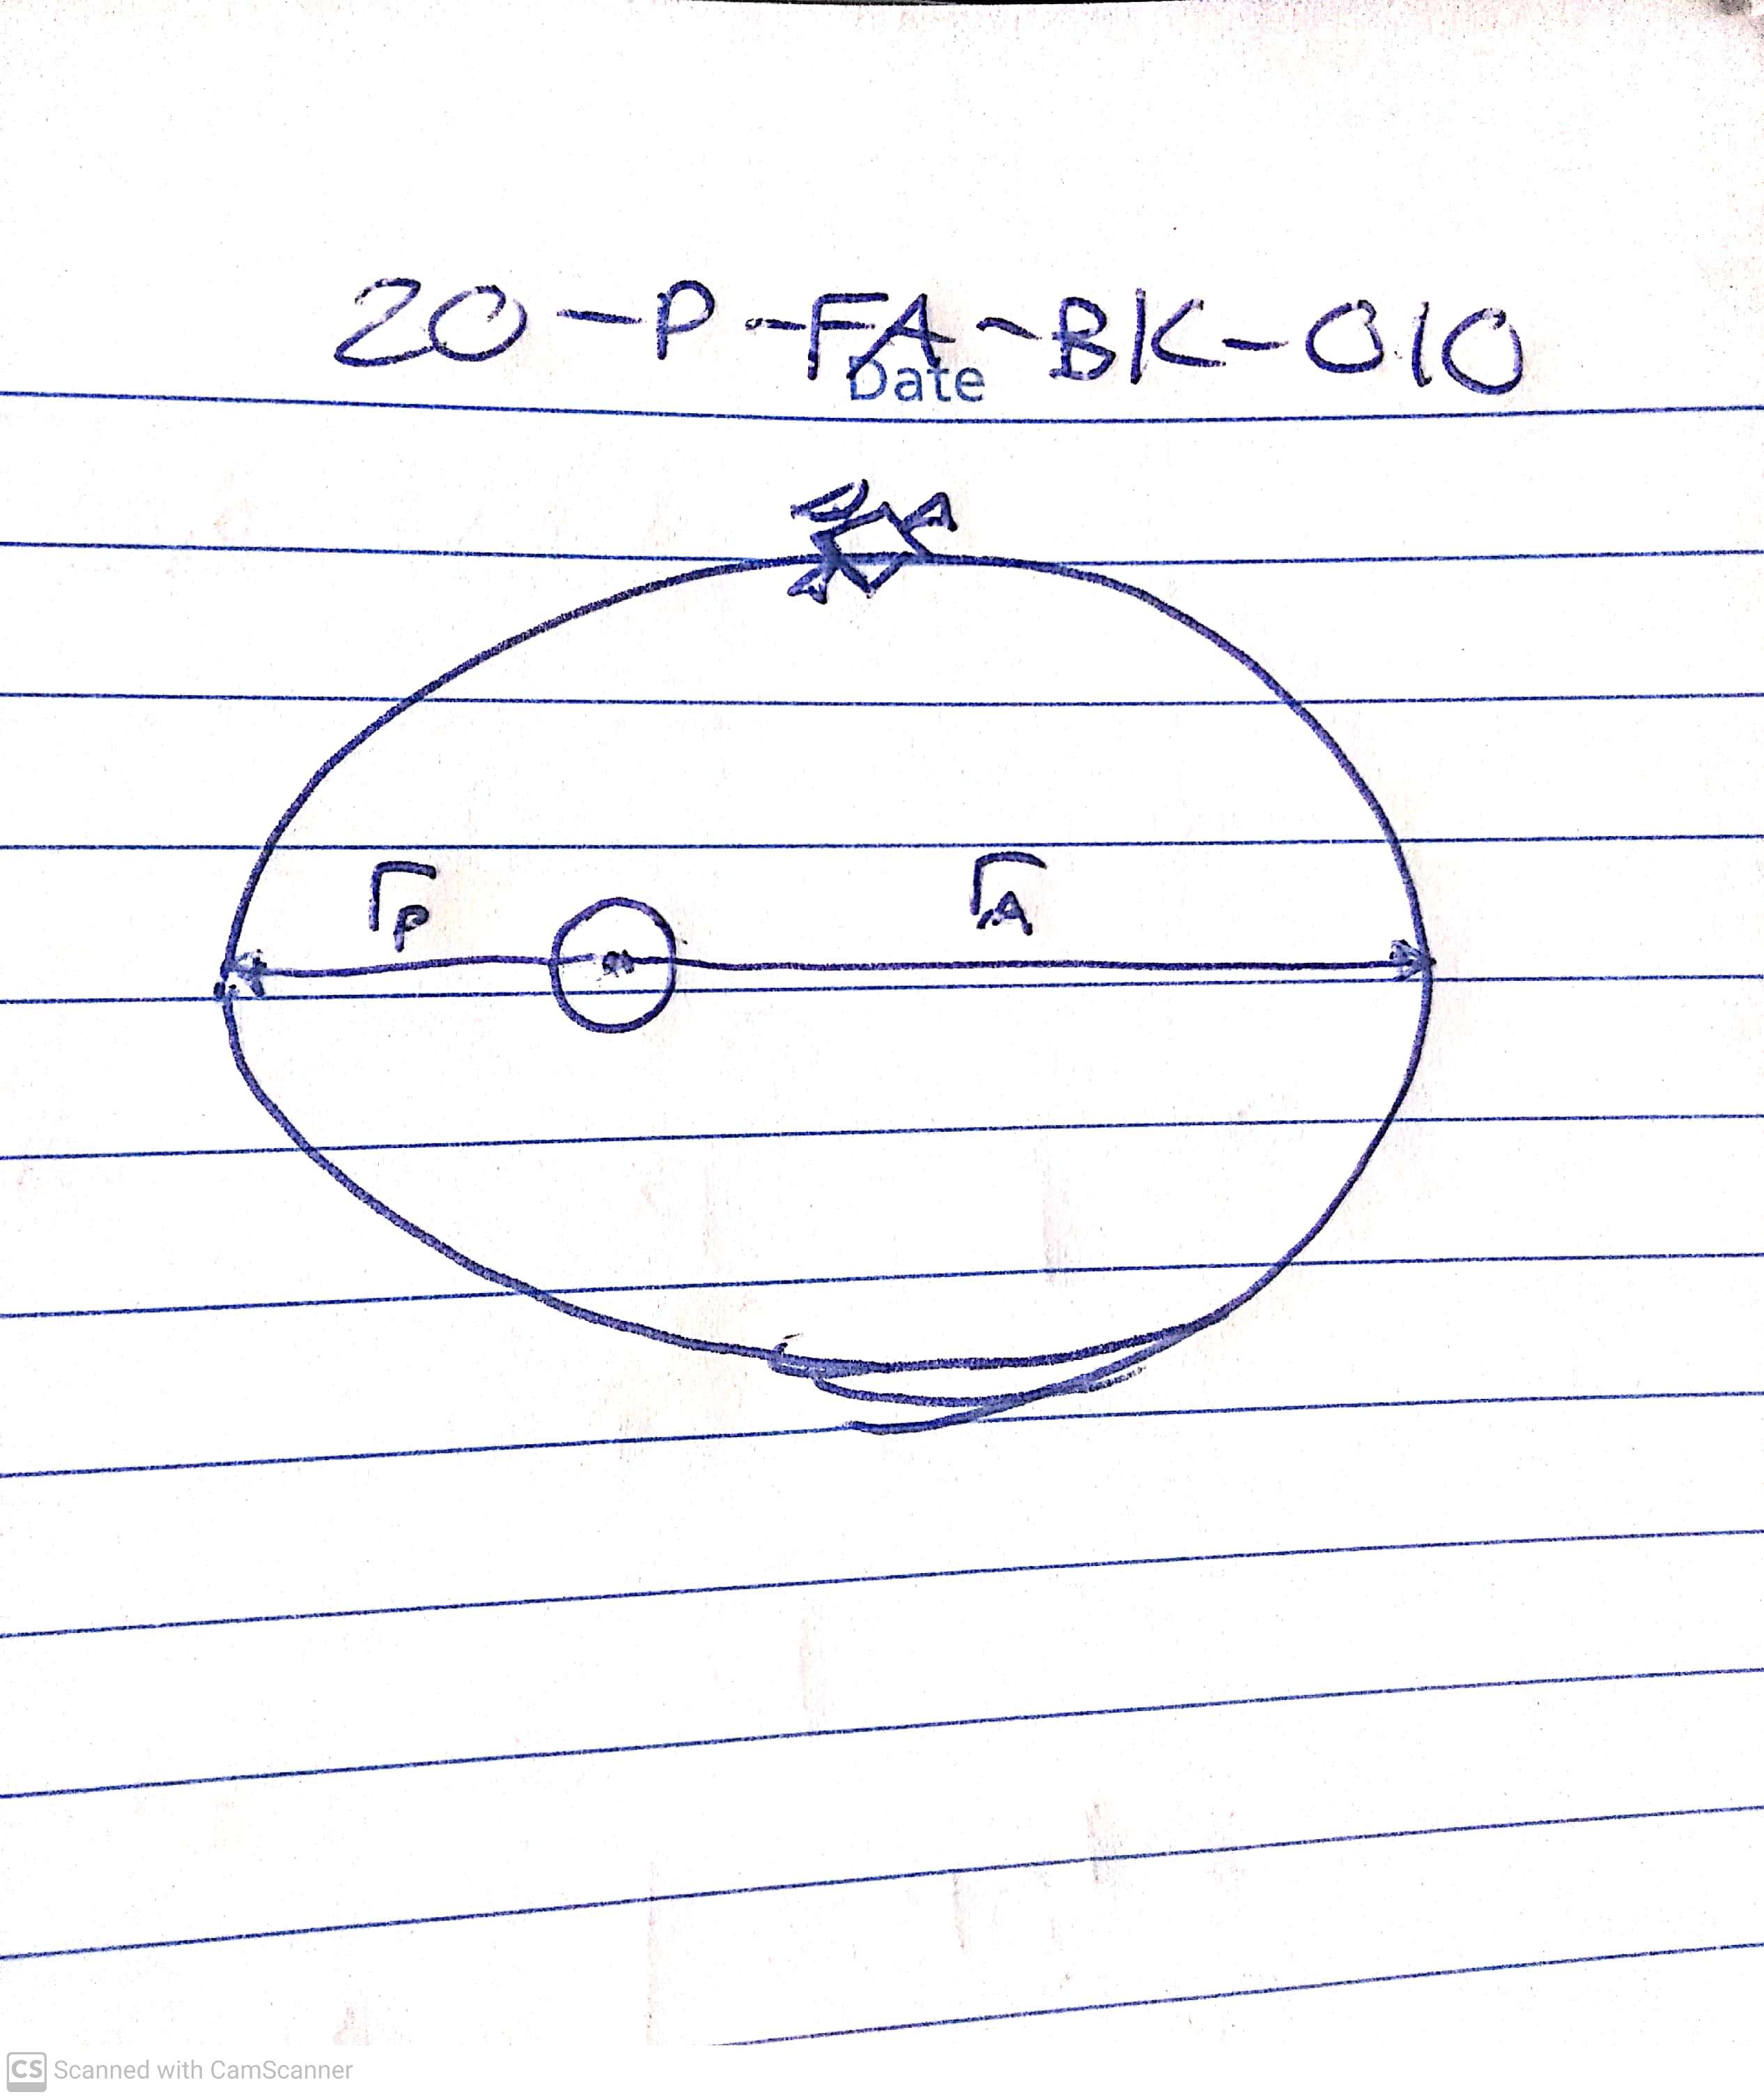 20-P-FA-BK-010
Date
rp rA
CS Scanned with CamScanner